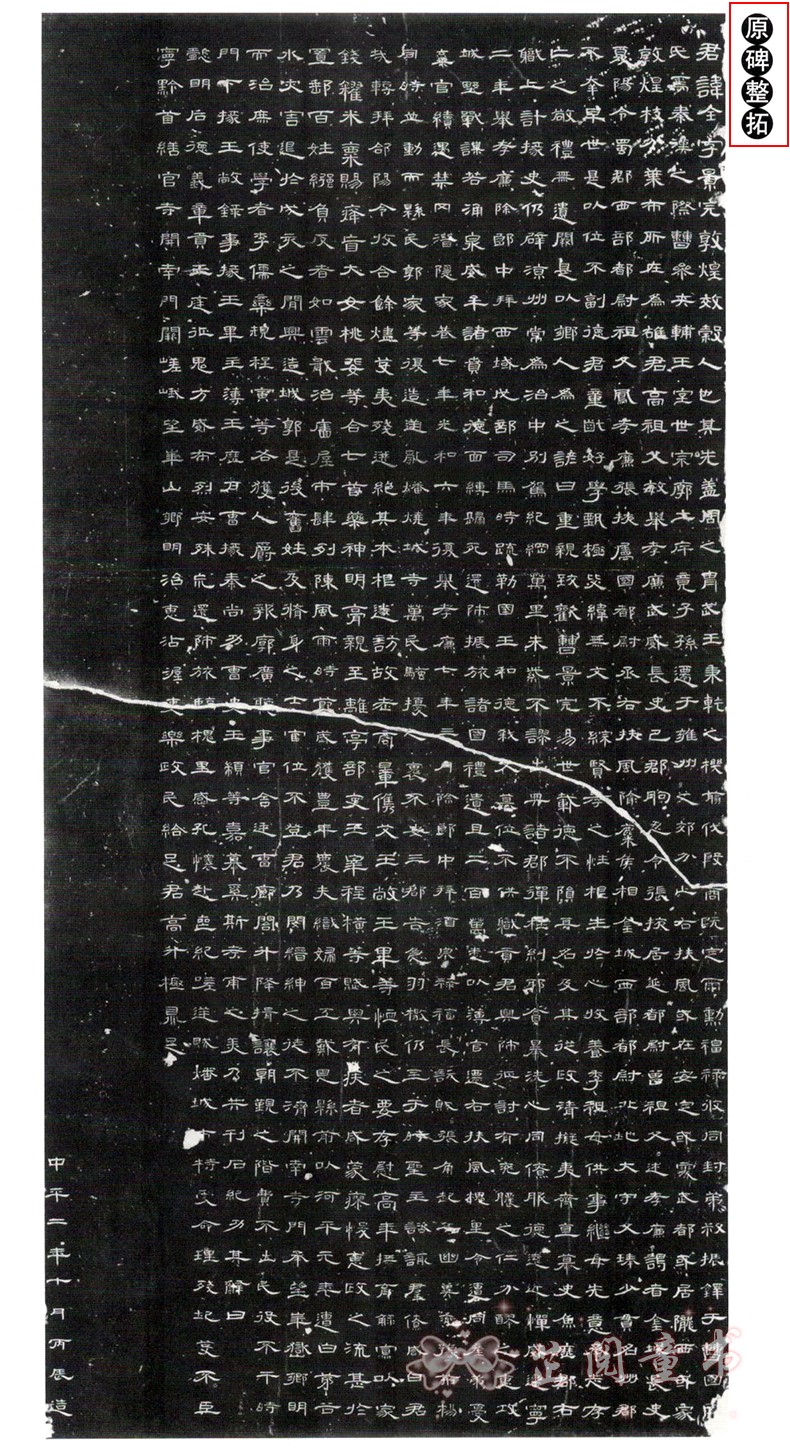 原碑整拓
君諱全字景完敦煌效穀人也其先蓋周之胄武王秉乾之機翦伐殷商既定爾勳福祿攸同封弟叔振鐸于曹國因
氏焉秦漢之際曹參夾輔王室世宗廓土斥竟子孫遷于雍州之郊分止右扶風或在安定或處武都或居隴西或家
敦煌枝分葉布所在為雄君高祖父敏舉孝廉武威長史巴郡朐忍令張掖居延都尉曾祖父述孝廉謁者金城長史
夏陽令蜀郡西部都尉祖父鳳孝廉張掖屬國都尉丞右扶風隃麋侯相金城西部都尉北地大守父琫少貫名州郡
不幸早世是以位不副德君童齔好學甄極毖緯無文不綜賢孝之性根生於心收養季祖母供事繼母先意承志存
亡之敬禮無遺闕是以鄉人為之諺曰重親致歡曹景完易世載德不隕其名及其從政清擬夷齊直慕史魚歷郡右
職上計掾史仍辟涼州常為治中別駕紀綱萬里朱紫不謬出典諸郡彈枉糾邪貪暴洗心同僚服德遠近憚威建寧
二年舉孝廉除郎中拜西域戊部司馬時疏勒國王和德弒父篡位不供職貢君興師征討有兗膿之仁分醪之惠攻
城野戰謀若涌泉威牟諸賁和德面縛歸死還師振旅諸國禮遺且二百萬悉以薄官遷右扶風槐里令遭同產弟憂
棄官續遇禁冈潛隱家巷七年光和六年復舉孝廉七年三月除郎中拜酒泉祿福長訞賊張角起兵幽冀兗豫荊楊
同時並動而縣民郭家等復造逆亂燔燒城寺萬民騷擾人裹不安三郡告急羽檄仍至于時聖主諮諏群僚咸曰君
哉轉拜郃陽令收合餘燼芟夷殘迸絕其本根遂訪故老商量儁艾王敞王畢等恤民之要存慰高年撫育鰥寡以家
錢糴米粟賜癃盲大女桃婓等合七首藥神明膏親至離亭部吏王宰程橫等賦與有疾者咸蒙瘳悛惠政之流甚於
置郵百姓繈負反者如雲戢治廧屋市肆列陳風雨時節歲獲豐年農夫織婦百工戴恩縣前以河平元年遭白茅谷
水災害退於戌亥之間興造城郭是後舊姓及脩身之士官位不登君乃閔縉紳之徒不濟開南寺門承望華嶽鄉明
而治庶使學者李儒欒規程寅等各獲人爵之報廓廣聽事官舍廷曹廊閣升降揖讓朝覲之階費不出民役不干時
門下掾王敞錄事掾王畢主簿王歷戶曹掾秦尚功曹史王顓等嘉慕奚斯考甫之美乃共刊石紀功其辭曰
懿明后德義章貢王庭征鬼方威布烈安殊巟還師旅臨槐里感孔懷赴喪紀嗟逆賊燔城市特受命理殘圮芟不臣
寧黔首繕官寺開南門闕嵯峨望華山鄉明治惠沾渥吏樂政民給足君高升極鼎足
中平二年十月丙辰造
芷閱童书